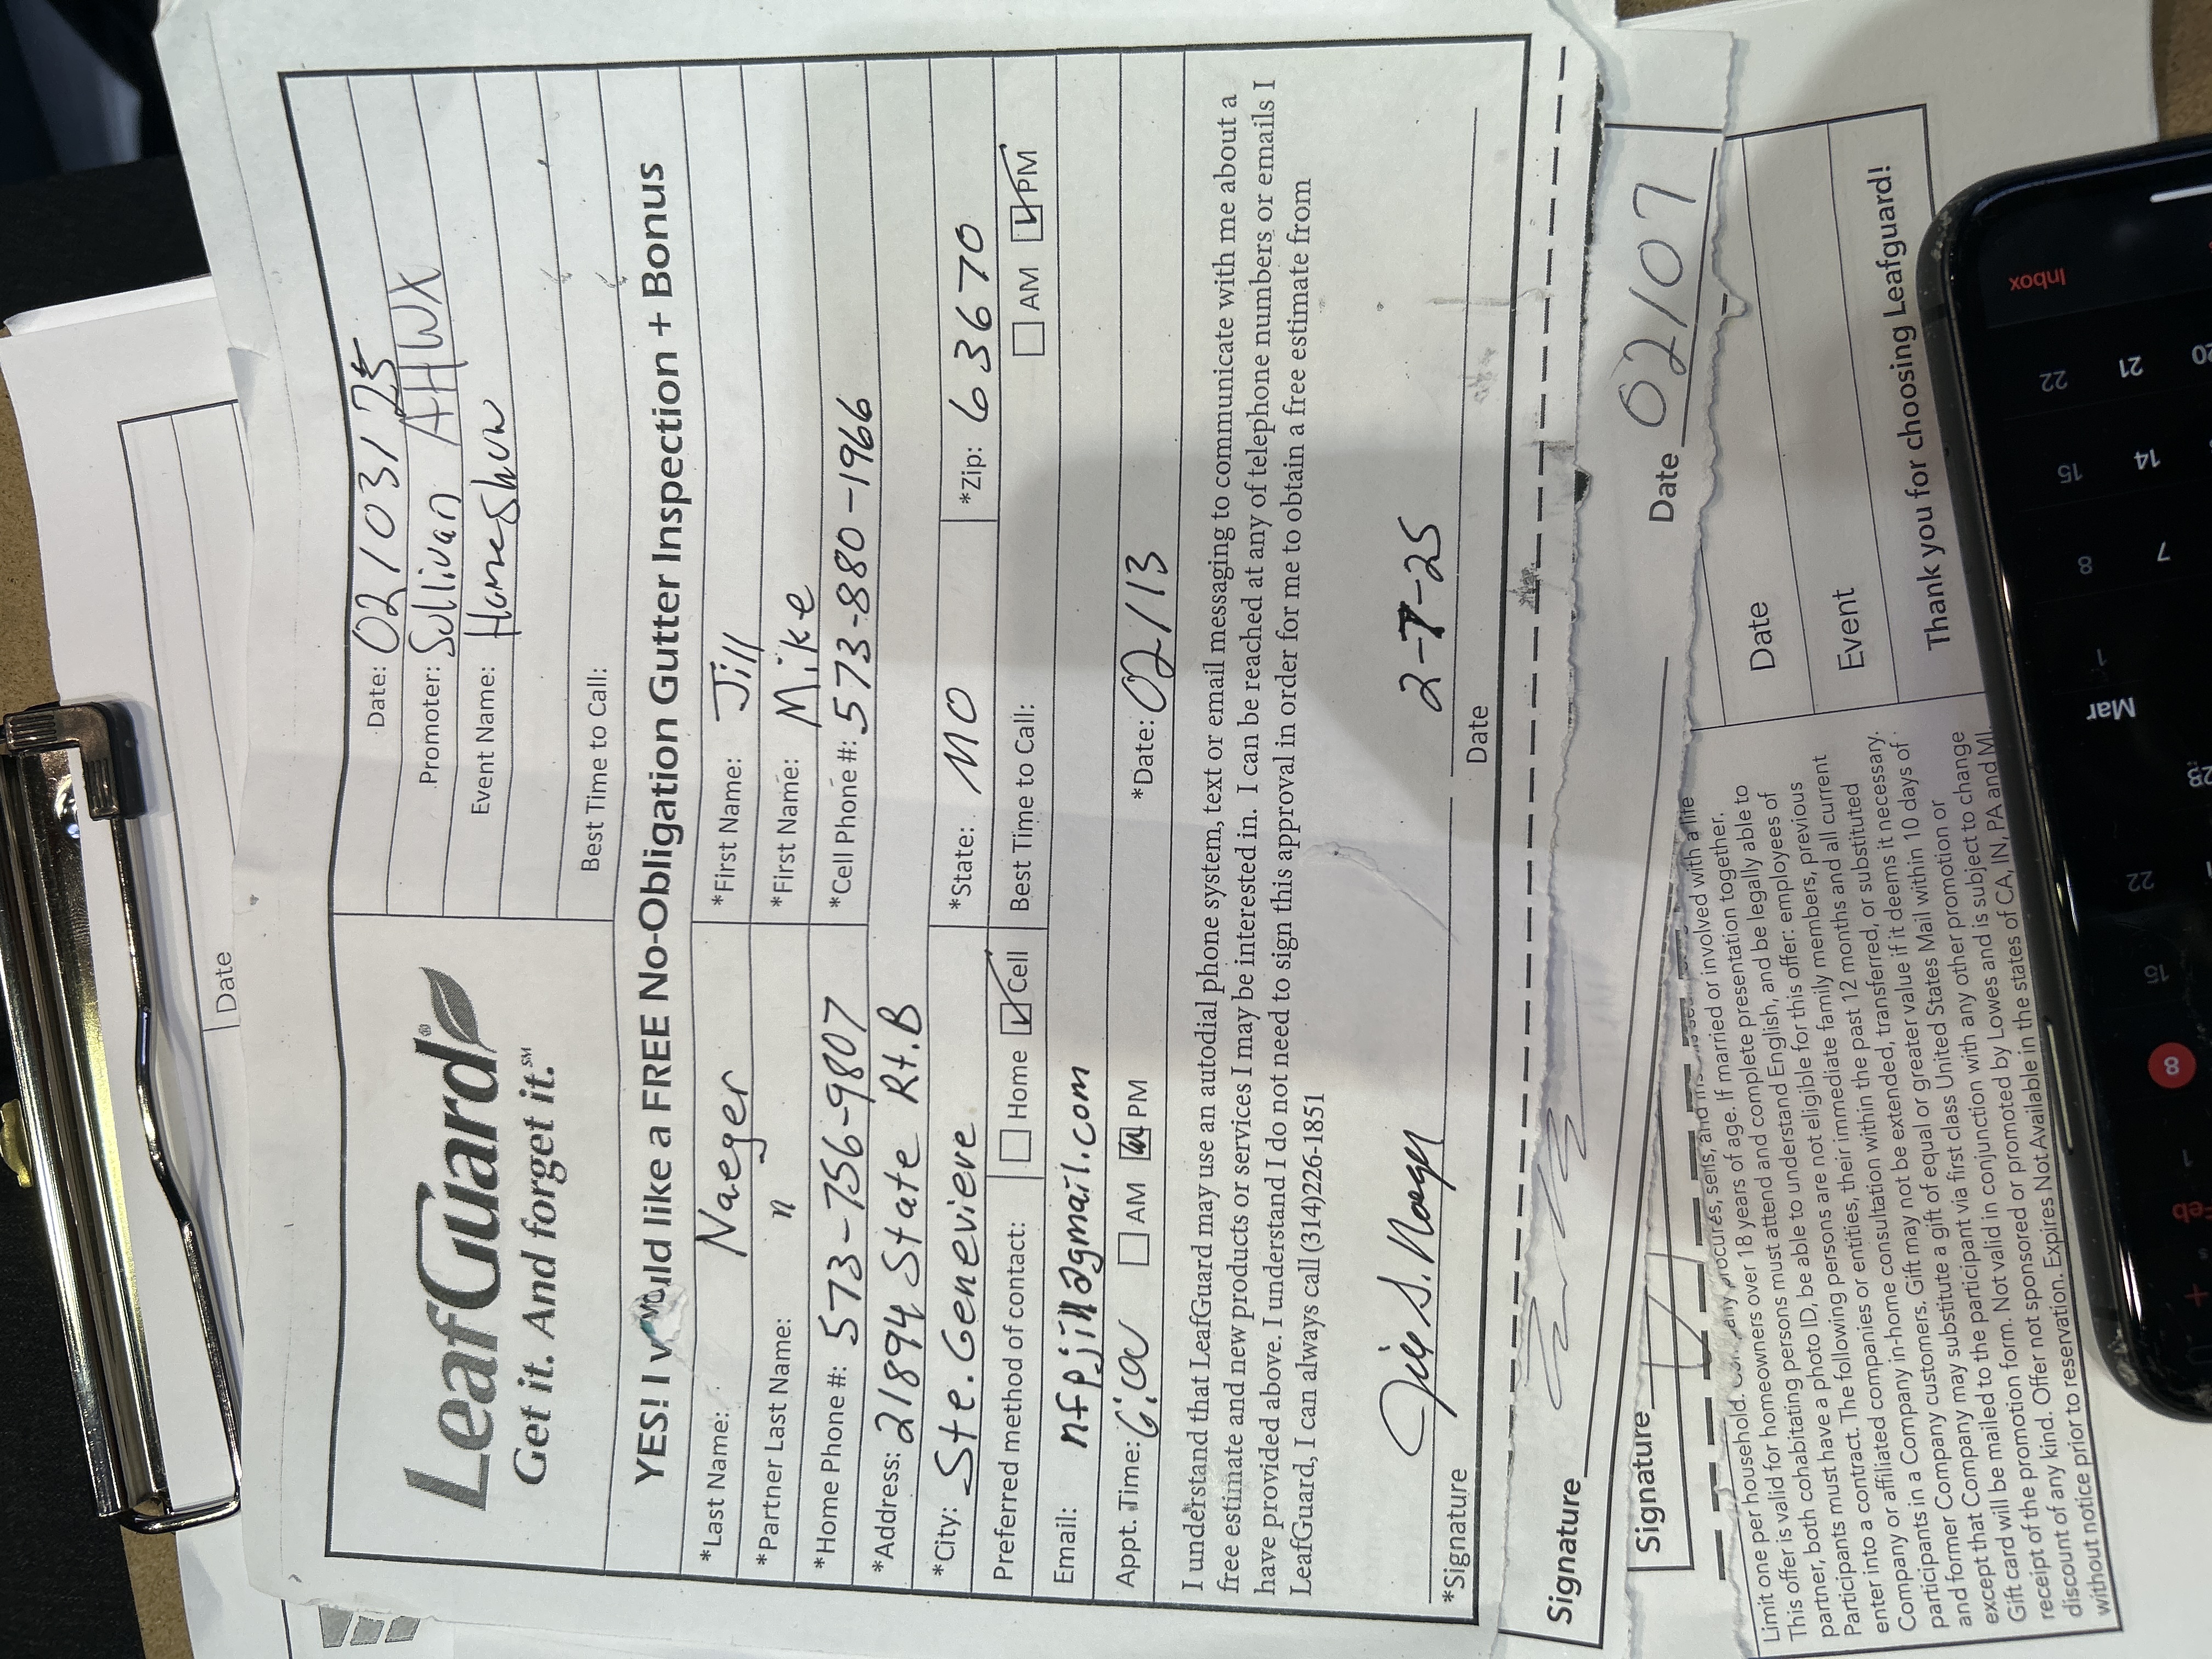 Date
LeafGuard®
Get it. And forget it.℠
Date: 02/03/25
Promoter: Sullivan AHWX
Event Name: Homeshow
Best Time to Call:
YES! I would like a FREE No-Obligation Gutter Inspection + Bonus
*Last Name: Naeger *First Name: Jill
*Partner Last Name: n *First Name: Mike
*Home Phone #: 573-756-9807 *Cell Phone #: 573-880-1966
*Address: 21894 State Rt. B
*City: Ste. Genevieve *State: MO *Zip: 63670
Preferred method of contact: Home Cell Best Time to Call: AM PM
Email: nfpjill@gmail.com
Appt. Time: 6:00 AM PM *Date: 02/13
I understand that LeafGuard may use an autodial phone system, text or email messaging to communicate with me about a
free estimate and new products or services I may be interested in. I can be reached at any of telephone numbers or emails I
have provided above. I understand I do not need to sign this approval in order for me to obtain a free estimate from
LeafGuard, I can always call (314)226-1851
Jill S. Naeger 2-7-25
*Signature Date
Signature
Signature Date 02/07
Limit one per household. Company procures, sells, and
This offer is valid for homeowners over 18 years of age. If married or involved with a life
partner, both cohabitating persons must attend and complete presentation together.
Participants must have a photo ID, be able to understand English, and be legally able to
enter into a contract. The following persons are not eligible for this offer: employees of
Company or affiliated companies or entities, their immediate family members, previous
participants in a Company in-home consultation within the past 12 months and all current
and former Company customers. Gift may not be extended, transferred, or substituted
except that Company may substitute a gift of equal or greater value if it deems it necessary.
Gift card will be mailed to the participant via first class United States Mail within 10 days of
receipt of the promotion form. Not valid in conjunction with any other promotion or
discount of any kind. Offer not sponsored or promoted by Lowes and is subject to change
without notice prior to reservation. Expires Not Available in the states of CA, IN, PA and MI.
Date
Event
Thank you for choosing Leafguard!
Feb
1
8
15
22
28
Mar
1
7
8
14
15
21
22
20
Inbox